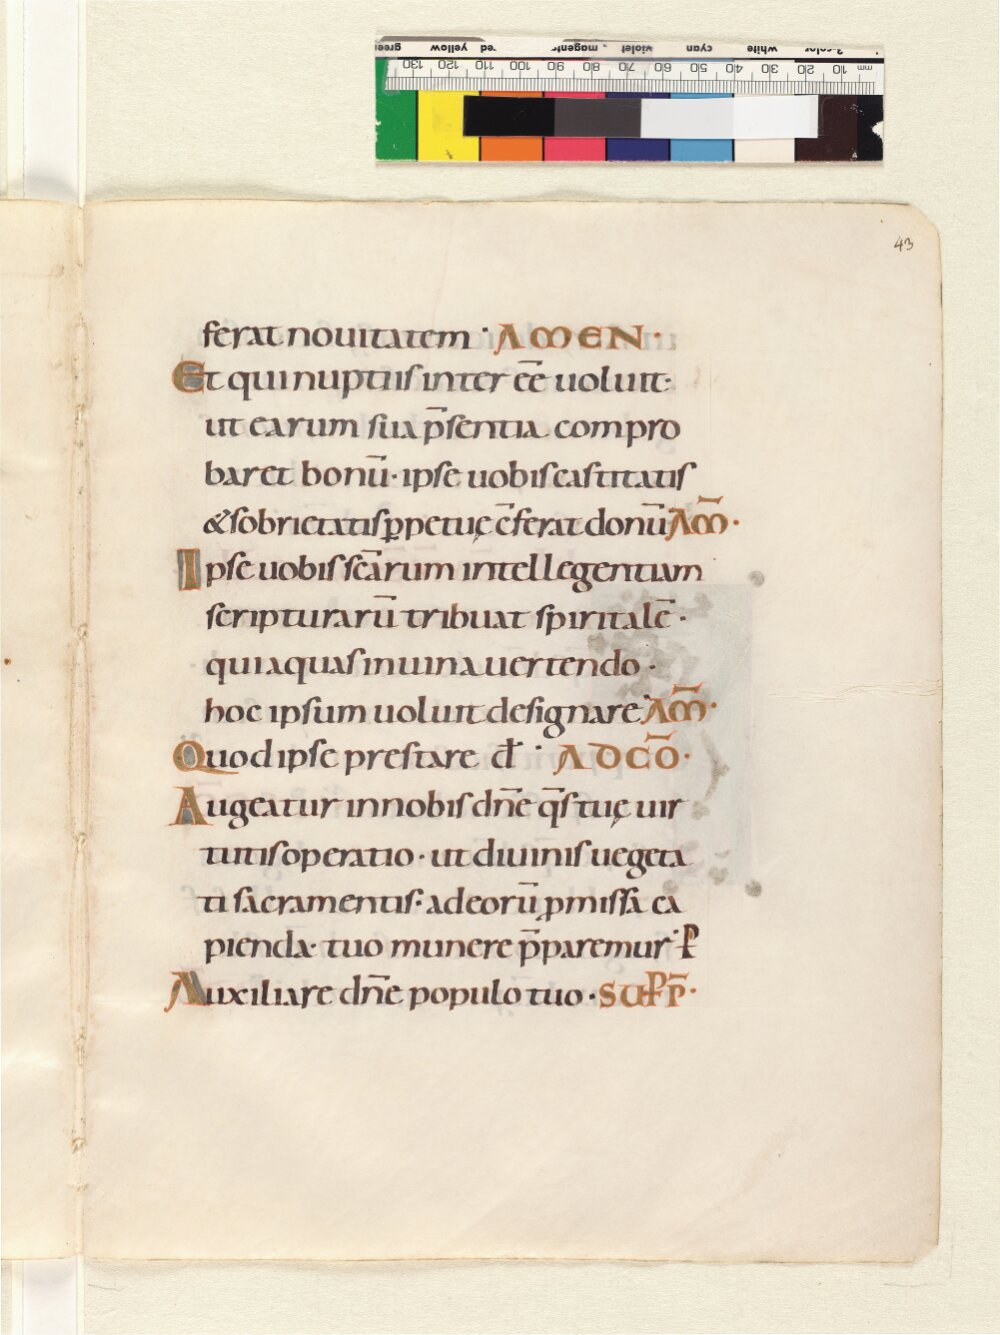 3-color white cyan violet magenta red yellow green
mm 10 20 30 40 50 60 70 80 90 100 110 120 130
43
ferat nouitatem · AMEN ·
Et qui nuptiis inter ēē uoluit ·
ut earum sua p̄sentia compro
baret bonū · ipse uobis castitatis
& sobrietatis ꝑpetuę c̄ferat donū AM̄ ·
Ipse uobis scārum intellegentiam
scripturarū tribuat spiritalē ·
qui aquas in uina uertendo ·
hoc ipsum uoluit designare · AM̄ ·
Quod ipse prestare đ · AD CŌ ·
Augeatur in nobis dn̄e q̄s tuę uir
tutis operatio · ut diuinis uegeta
ti sacramentis · ad eorū ꝓmissa ca
pienda · tuo munere p̄paremur · P
Auxiliare dn̄e populo tuo · SUPP̄ ·